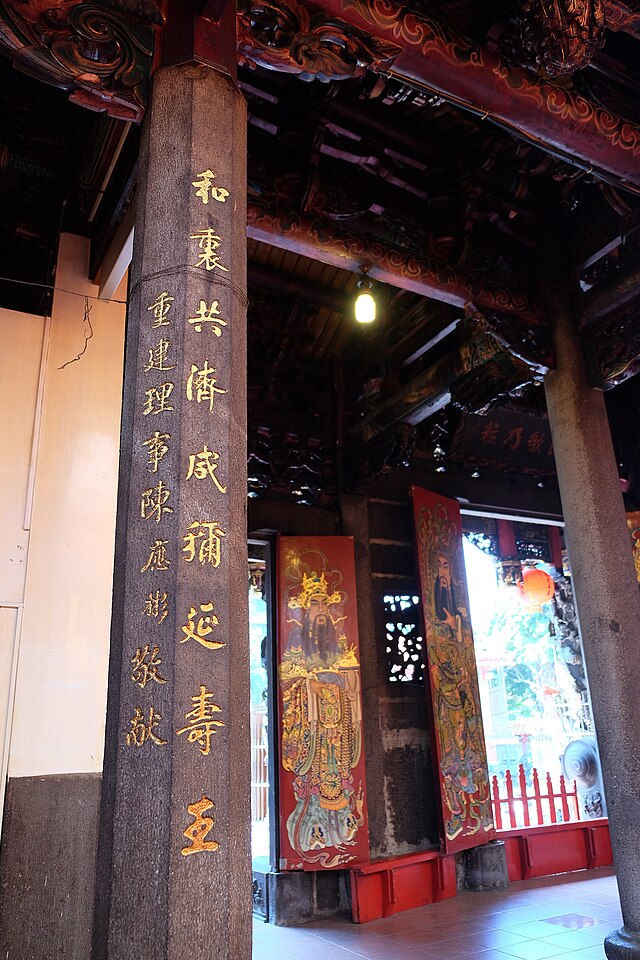 和衷共濟咸稱延壽王
重建理事陳應彬敬献